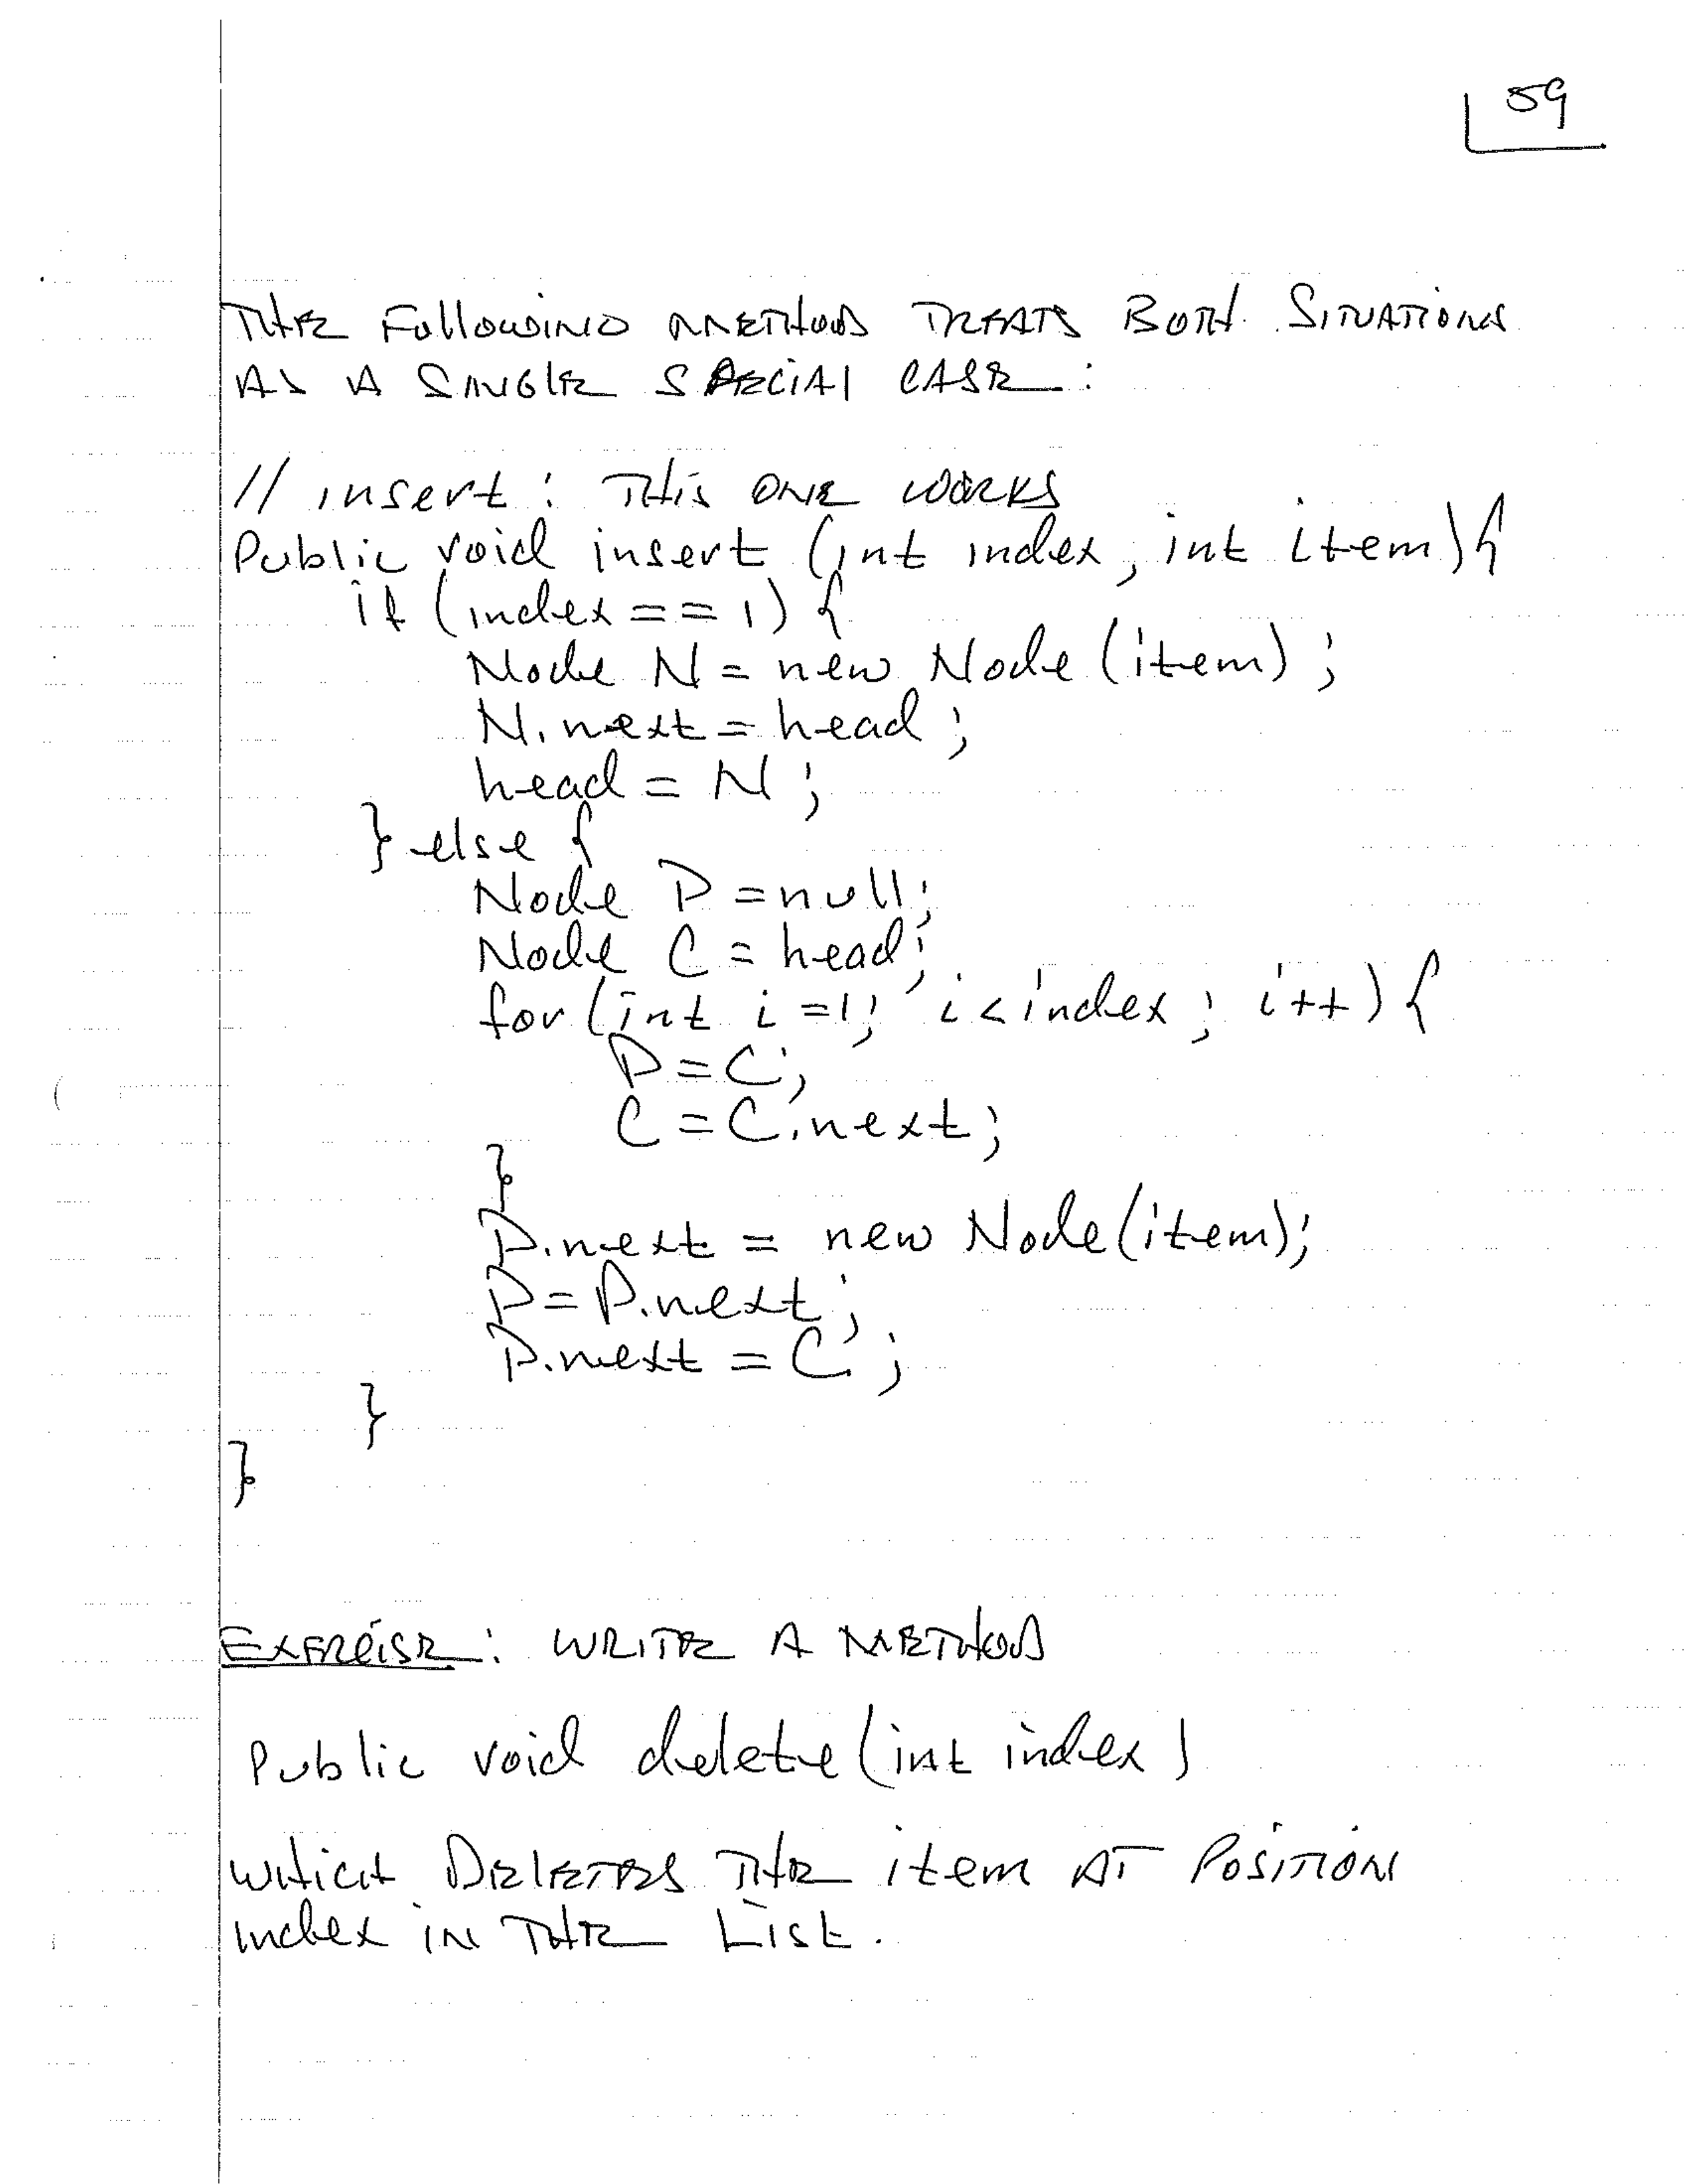 59
THE FOLLOWING METHOD TREATS BOTH SITUATIONS
AS A SINGLE SPECIAL CASE:
// insert: THIS ONE WORKS
Public void insert (int index, int item){
if (index == 1) {
Node N = new Node (item);
N.next = head;
head = N;
} else {
Node P = null;
Node C = head;
for (int i = 1; i < index; i++) {
P = C;
C = C.next;
}
P.next = new Node(item);
P = P.next;
P.next = C;
}
}
EXERCISE: WRITE A METHOD
Public void delete (int index)
WHICH DELETES THE item AT POSITION
index IN THE LIST.